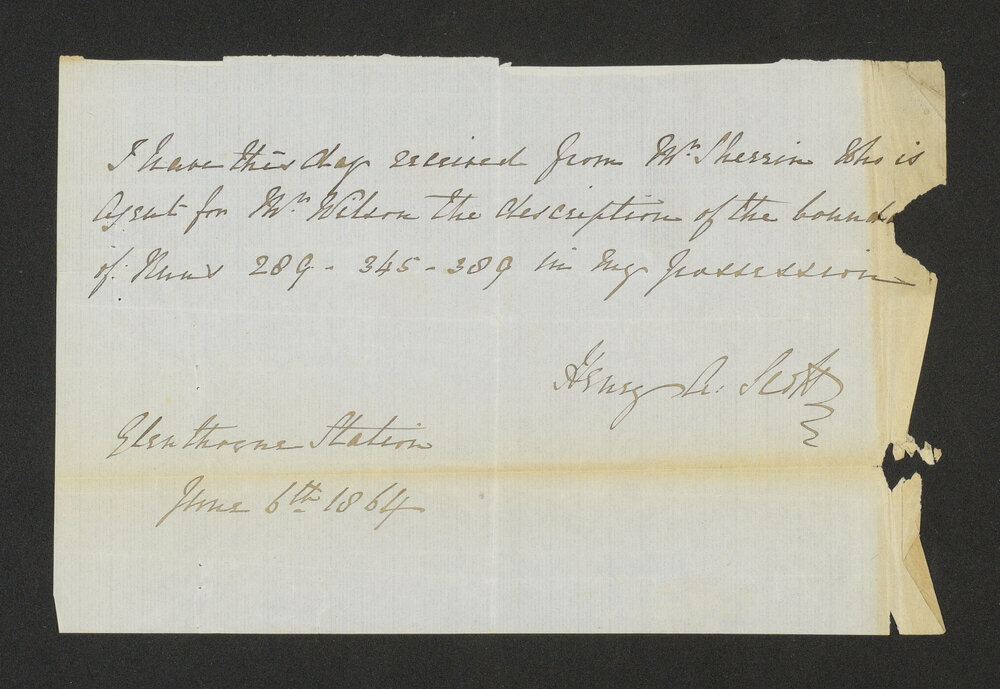 I have this day received from Mr Sherrin who is
Agent for Mr Wilson the description of the bounda
of Runs 289 - 345 - 389 in my possession
Henry A. Scott
Glenthorne Station
June 6th 1864